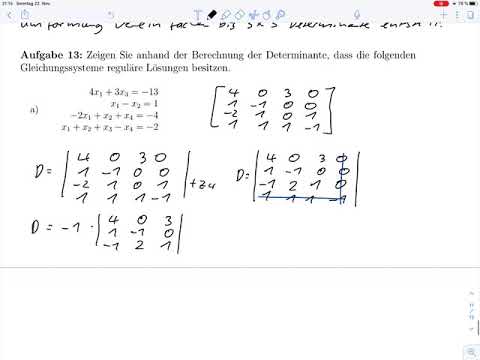 21:16 Sonntag 22. Nov.
70 %
Aufgabe 13: Zeigen Sie anhand der Berechnung der Determinante, dass die folgenden
Gleichungssysteme reguläre Lösungen besitzen.
a)
4x₁ + 3x₃ = −13
x₁ − x₂ = 1
−2x₁ + x₂ + x₄ = −4
x₁ + x₂ + x₃ − x₄ = −2
4 0 3 0
1 -1 0 0
-2 1 0 1
1 1 1 -1
D =
4 0 3 0
1 -1 0 0
-2 1 0 1
1 1 1 -1
+Z4
D =
4 0 3 0
1 -1 0 0
-1 2 1 0
1 1 1 -1
D = -1 ·
4 0 3
1 -1 0
-1 2 1